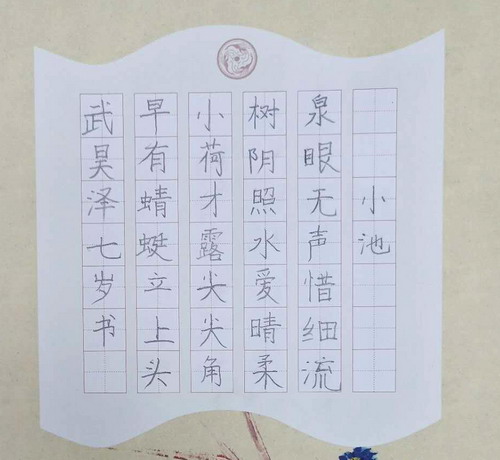 小池
泉眼无声惜细流
树阴照水爱晴柔
小荷才露尖尖角
早有蜻蜓立上头
武昊泽七岁书